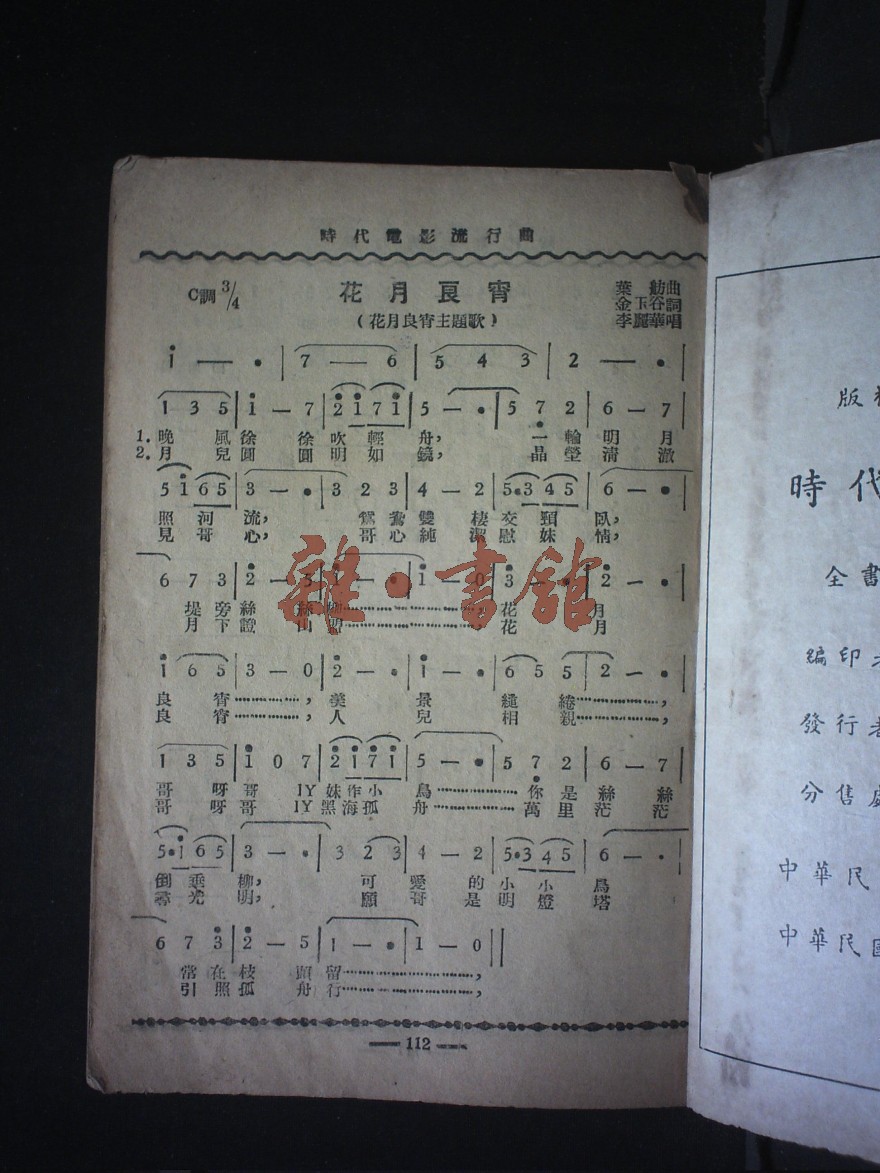 時代電影流行曲
C調 3/4
花月良宵
葉舫曲
金玉谷詞
李麗華唱
(花月良宵主題歌)
i — • | 7 — 6 | 5 4 3 | 2 — • |
1 3 5 | i — 7 | 2 1 7 1 | 5 — • | 5 7 2 | 6 — 7
1. 晚風徐徐吹輕舟, 一輪明月
2. 月兒圓圓明如鏡, 晶瑩清澈
5 i 6 5 | 3 — • | 3 2 3 | 4 — 2 | 5•3 4 5 | 6 — • |
照河流, 鴛鴦雙棲交頸臥,
見哥心, 哥心純潔慰妹情,
6 7 3 | 2 — 5 | 1 — • | i — 0 | 3 — • | 2 — • |
堤旁絲絲柳…………, 花月
月下證山盟…………, 花月
i 6 5 | 3 — 0 | 2 — • | i — • | 6 5 5 | 2 — • |
良宵…………, 美景繾綣…………,
良宵…………, 人兒相親…………,
1 3 5 | i 0 7 | 2 1 7 1 | 5 — • | 5 7 2 | 6 — 7
哥呀哥 IY 妹作小鳥………你是絲絲
哥呀哥 IY 黑海孤舟………萬里茫茫
5•i 6 5 | 3 — • | 3 2 3 | 4 — 2 | 5•3 4 5 | 6 — • |
倒垂柳, 可愛的小小鳥
尋光明, 願哥是明燈塔
6 7 3 | 2 — 5 | 1 — • | 1 — 0 ||
常在枝頭留…………,
引照孤舟行…………,
— 112 —
雜·書館
版
時代
全書
編印
發行者
分售處
中華民
中華民國